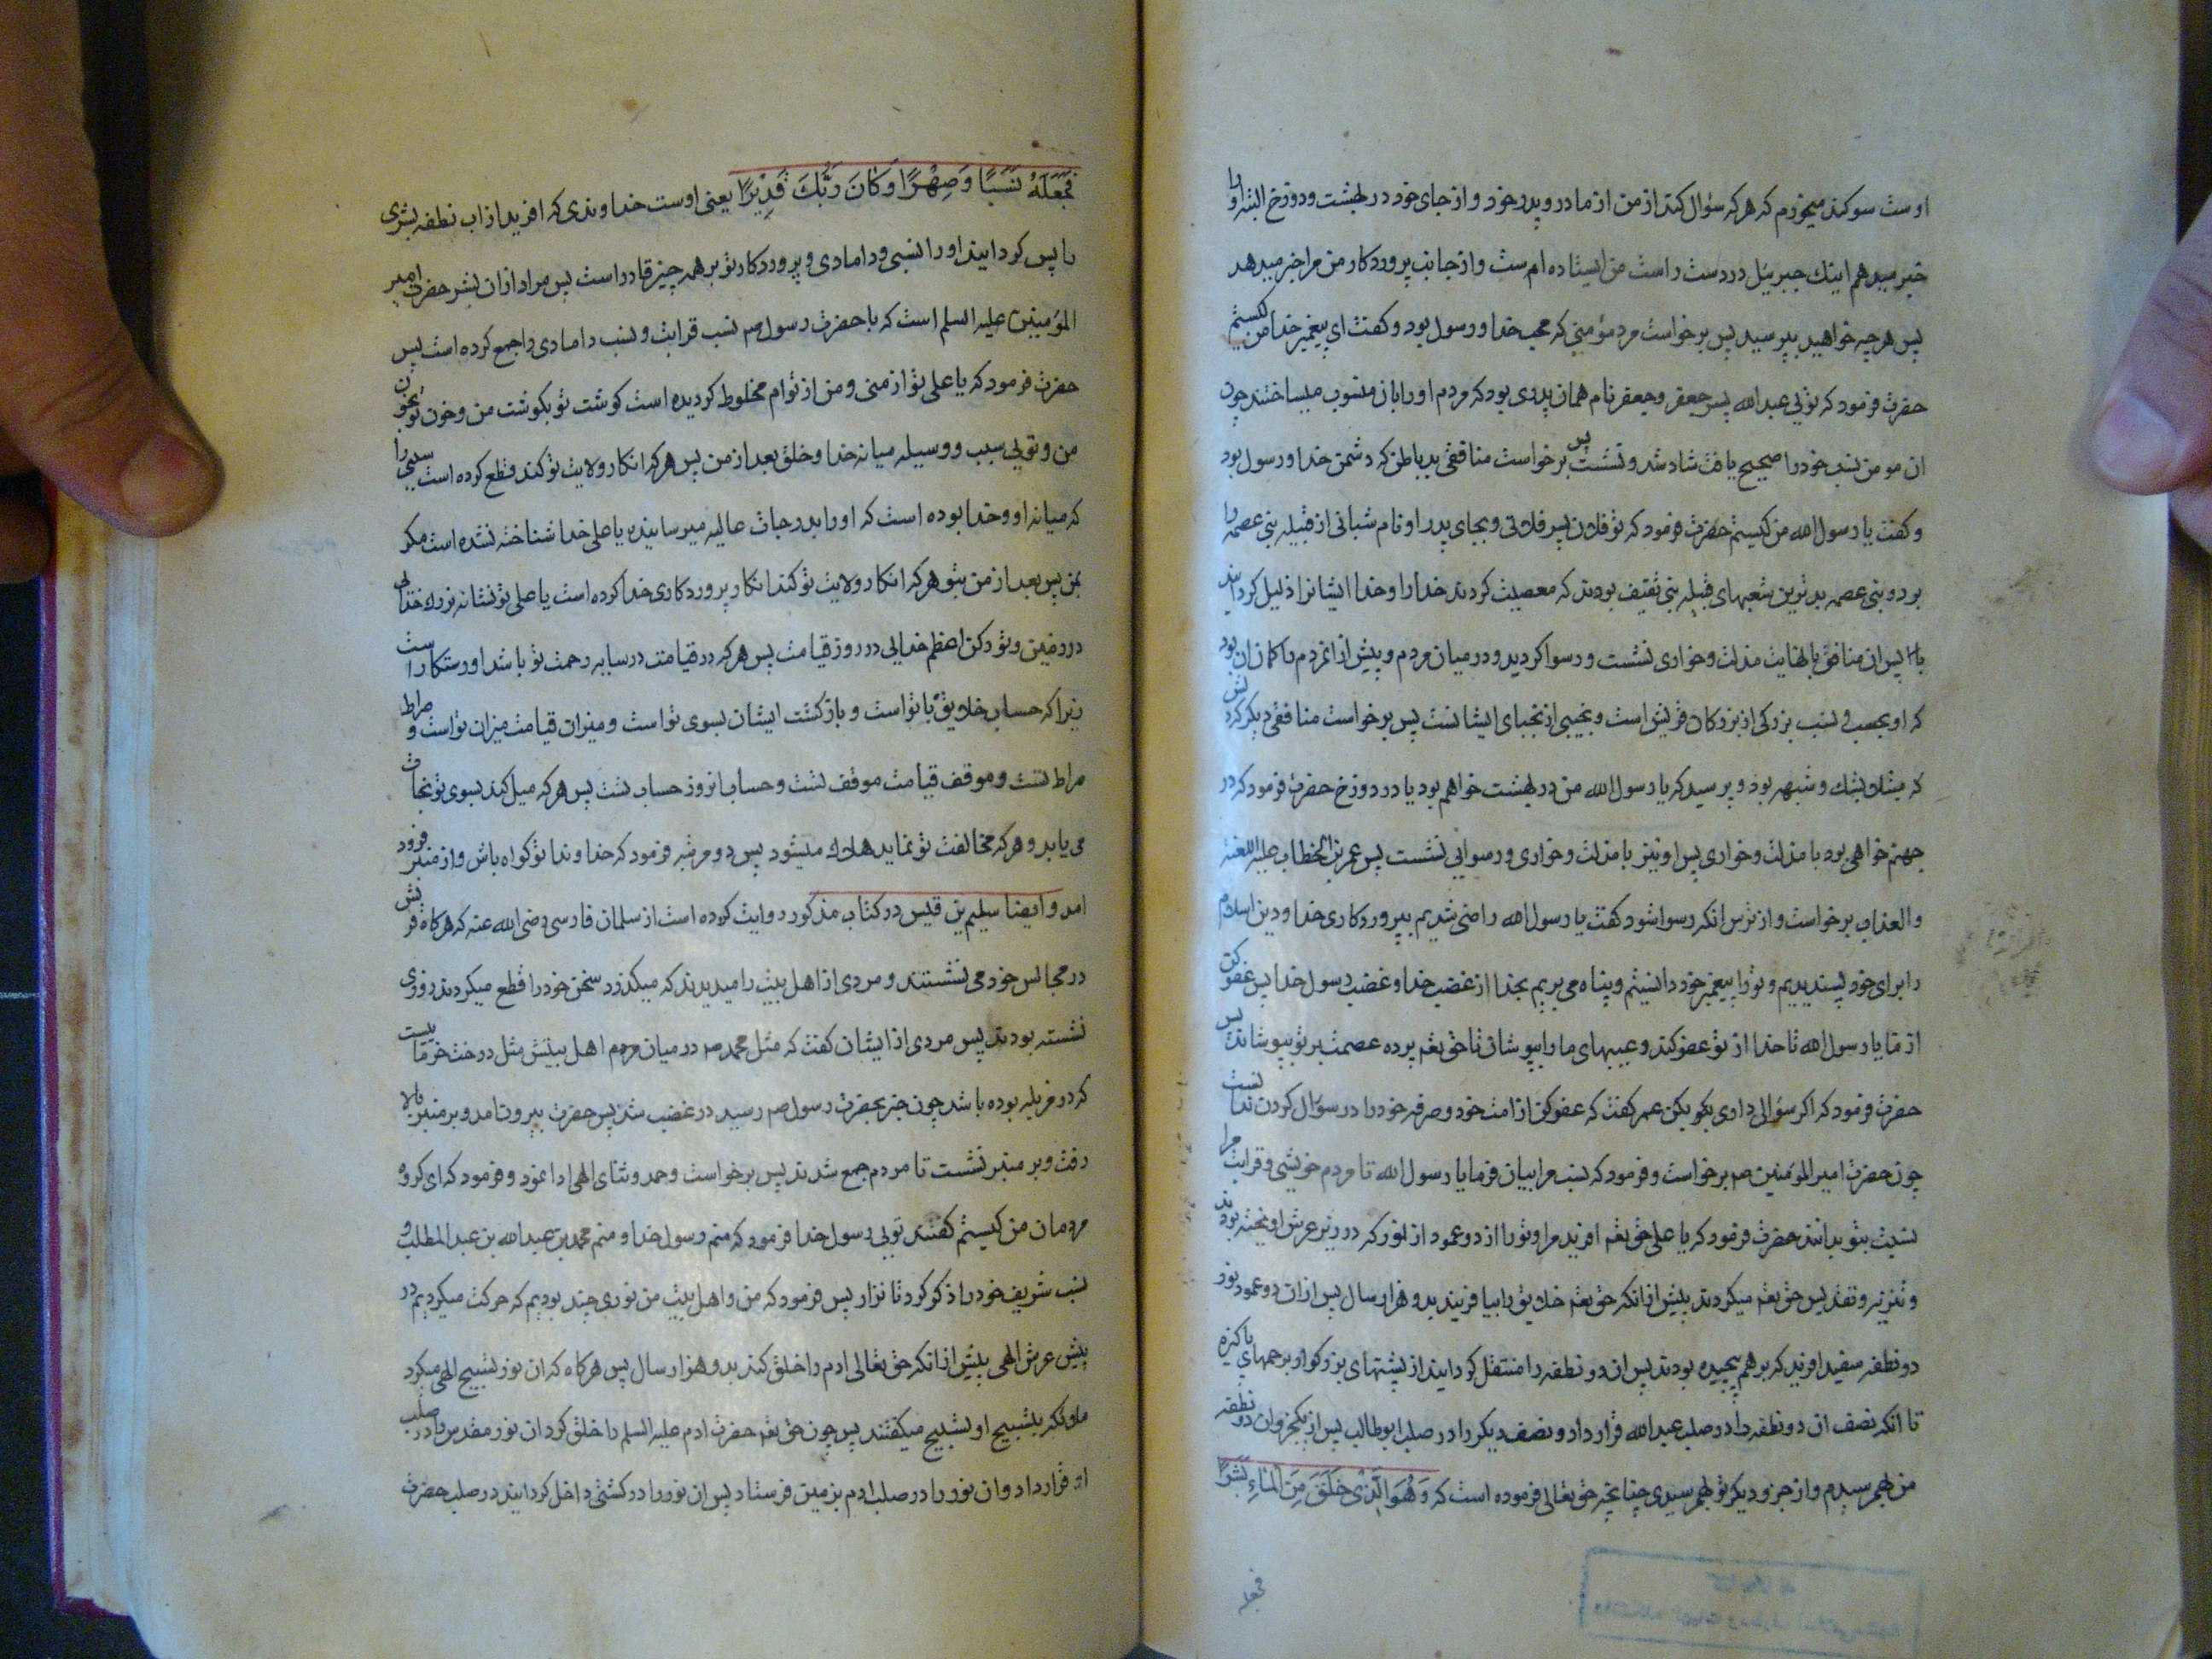 اوست سوکند میخورم که هر که سؤال کند از من از مادر و پدر خود و از جای خود در بهشت و دوزخ البته او را
خبر میدهم اینک جبرییل در دست راست من ایستاده است و از جانب پروردکار من مرا خبر میدهد
پس هر چه خواهید بپرسید پس برخواست مرد مؤمنی که محب خدا و رسول بود و کفت ای پیغمبر خدا من کیستم
حضرت فرمود که تویی عبدالله پسر جعفر و جعفر نام همان پدری بود که مردم او را بان منسوب میساختند چون
ان مومن نسب خود را صحیح یافت شاد شد و نشست پس برخواست منافقی بد باطن که دشمن خدا و رسول بود
و کفت یا رسول الله من کیستم حضرت فرمود که تو فلان پسر فلانی و بجای پدر او نام شبانی از قبیله بنی عصمه را
برد و بنی عصمه بدترین شعبهای قبیله بنی ثقیف بودند که معصیت کردند خدا را و خدا ایشانرا ذلیل کردانید
پس ان منافق بانهایت مذلت و خواری نشست و رسوا کردید و در میان مردم و پیش از ان مردم را کمان ان بود
که او بحسب نسب بزرکی از بزرکان قریش است و نجیبی از نجبای ایشانست پس برخواست منافقی دیکر
که مبتلا بشک و شبهه بود و پرسید که یا رسول الله من در بهشت خواهم بود یا در دوزخ حضرت فرمود که در
جهنم خواهی بود با مذلت و خواری پس او نیز با مذلت و خواری و رسوایی نشست پس عمر بن الخطاب علیه اللعنه
والعذاب برخواست و از ترس انکه رسوا شود کفت یا رسول الله راضی شدیم بپروردکاری خدا و دین اسلام
را برای خود پسندیدیم و تو را پیغمبر خود دانستیم و پناه می بریم بخدا از غضب خدا و غضب رسول خدا پس عفو کن
از ما یا رسول الله تا خدا از تو عفو کند و عیبهای ما را بپوشان تا حق تعم پرده عصمت بر تو بپوشاند پس
حضرت فرمود که اکر سؤالی داری بکو بکن عمر کفت که عفو کن از امت خود و صرفه خود را در سؤال کردن ندانست
چون حضرت امیر المؤمنین صم برخواست و فرمود که نسب مرا بیان فرما یا رسول الله تا مردم خویشی و قرابت مرا
نسبت بتو بدانند حضرت فرمود که یا علی حق تعم افرید مرا و تو را از دو عمود از نور که در زیر عرش اویخته بودند
و تنزیه و تقدیس حق تعم میکردند پیش از انکه حق تعم خلایق را بیافریند بدو هزار سال پس از ان دو عمود نور
دو نطفه سفید افرید که بر هم پیچیده بودند پس ان دو نطفه را منتقل کردانید از پشتهای بزرکوار برحمهای پاکیزه
تا انکه نصف ان دو نطفه را در صلب عبدالله قرار داد و نصف دیکر را در صلب ابوطالب پس از یکجزو ان دو نطفه
من بهم رسیدم و از جزو دیکر تو بهم رسیدی چنانچه حق تعالی فرموده است که وَهُوَ الَّذی خَلَقَ مِنَ الْمَاءِ بَشَرًا
فجعله
فَجَعَلَهُ نَسَبًا وَصِهْرًا وَكَانَ رَبُّكَ قَدِيرًا یعنی اوست خداوندی که افرید از اب نطفه بشری
را پس کردانید او را نسبی و دامادی و پروردکار تو بر همه چیز قادر است پس مراد از ان بشر حضرت امیر
المؤمنین علیه السلم است که با حضرت رسول صم نسب قرابت و نسب دامادی را جمع کرده است پس
حضرت فرمود که یا علی تو از منی و من از توام مخلوط کردیده است کوشت تو بکوشت من و خون تو بخون
من و تویی سبب و وسیله میانه خدا و خلق بعد از من پس هر که انکار ولایت تو کند قطع کرده است سببی را
که میانه او و خدا بوده است که او را بدرجات عالیه میرسانیده یا علی خدا شناخته نشده است مکر
بمن پس بعد از من بتو هر که انکار ولایت تو کند انکار پروردکاری خدا کرده است یا علی تو نشانه بزرک خدایی
در زمین و تو رکن اعظم خدایی در روز قیامت پس هر که در قیامت در سایه رحمت تو باشد او رستکار است
زیرا که حساب خلایق با تو است و بازکشت ایشان بسوی تو است و میزان قیامت میزان تو است و صراط
صراط تست و موقف قیامت موقف تست و حساب انروز حساب تست پس هر که میل کند بسوی تو نجات
می یابد و هر که مخالفت تو نماید هلاک میشود پس دو مرتبه فرمود که خداوندا تو کواه باش و از منبر فرود
امد و ایضا سلیم بن قیس در کتاب مذکور روایت کرده است از سلمان فارسی رضی الله عنه که هرکاه قریش
در مجالس خود می نشستند و مردی از اهل بیت را میدیدند که میکذرد سخن خود را قطع میکردند روزی
نشسته بودند پس مردی از ایشان کفت که مثل محمد صم در میان مردم اهل بیتش مثل درخت خرماییست
که در مزبله بوده باشد چون خبر بحضرت رسول صم رسید در غضب شد پس حضرت بیرون امد و بر منبر بالا
رفت و بر منبر نشست تا مردم جمع شدند پس برخواست و حمد و ثنای الهی ادا نمود و فرمود که ای کروه
مردمان من کیستم کفتند تویی رسول خدا فرمود که منم رسول خدا و منم محمد بن عبدالله بن عبدالمطلب و
نسب شریف خود را ذکر کرد تا نزار پس فرمود که من و اهل بیت من نوری چند بودیم که حرکت میکردیم در
پیش عرش الهی پیش از انکه حق تعالی ادم را خلق کند بدو هزار سال پس هرکاه که ان نور تسبیح الهی میکرد
ملائکه بتسبیح او تسبیح میکفتند پس چون حق تعم حضرت ادم علیه السلم را خلق کرد ان نور مقدس را در صلب
او قرار داد و ان نور را در صلب ادم بزمین فرستاد پس ان نور را در کشتی داخل کردانید در صلب حضرت